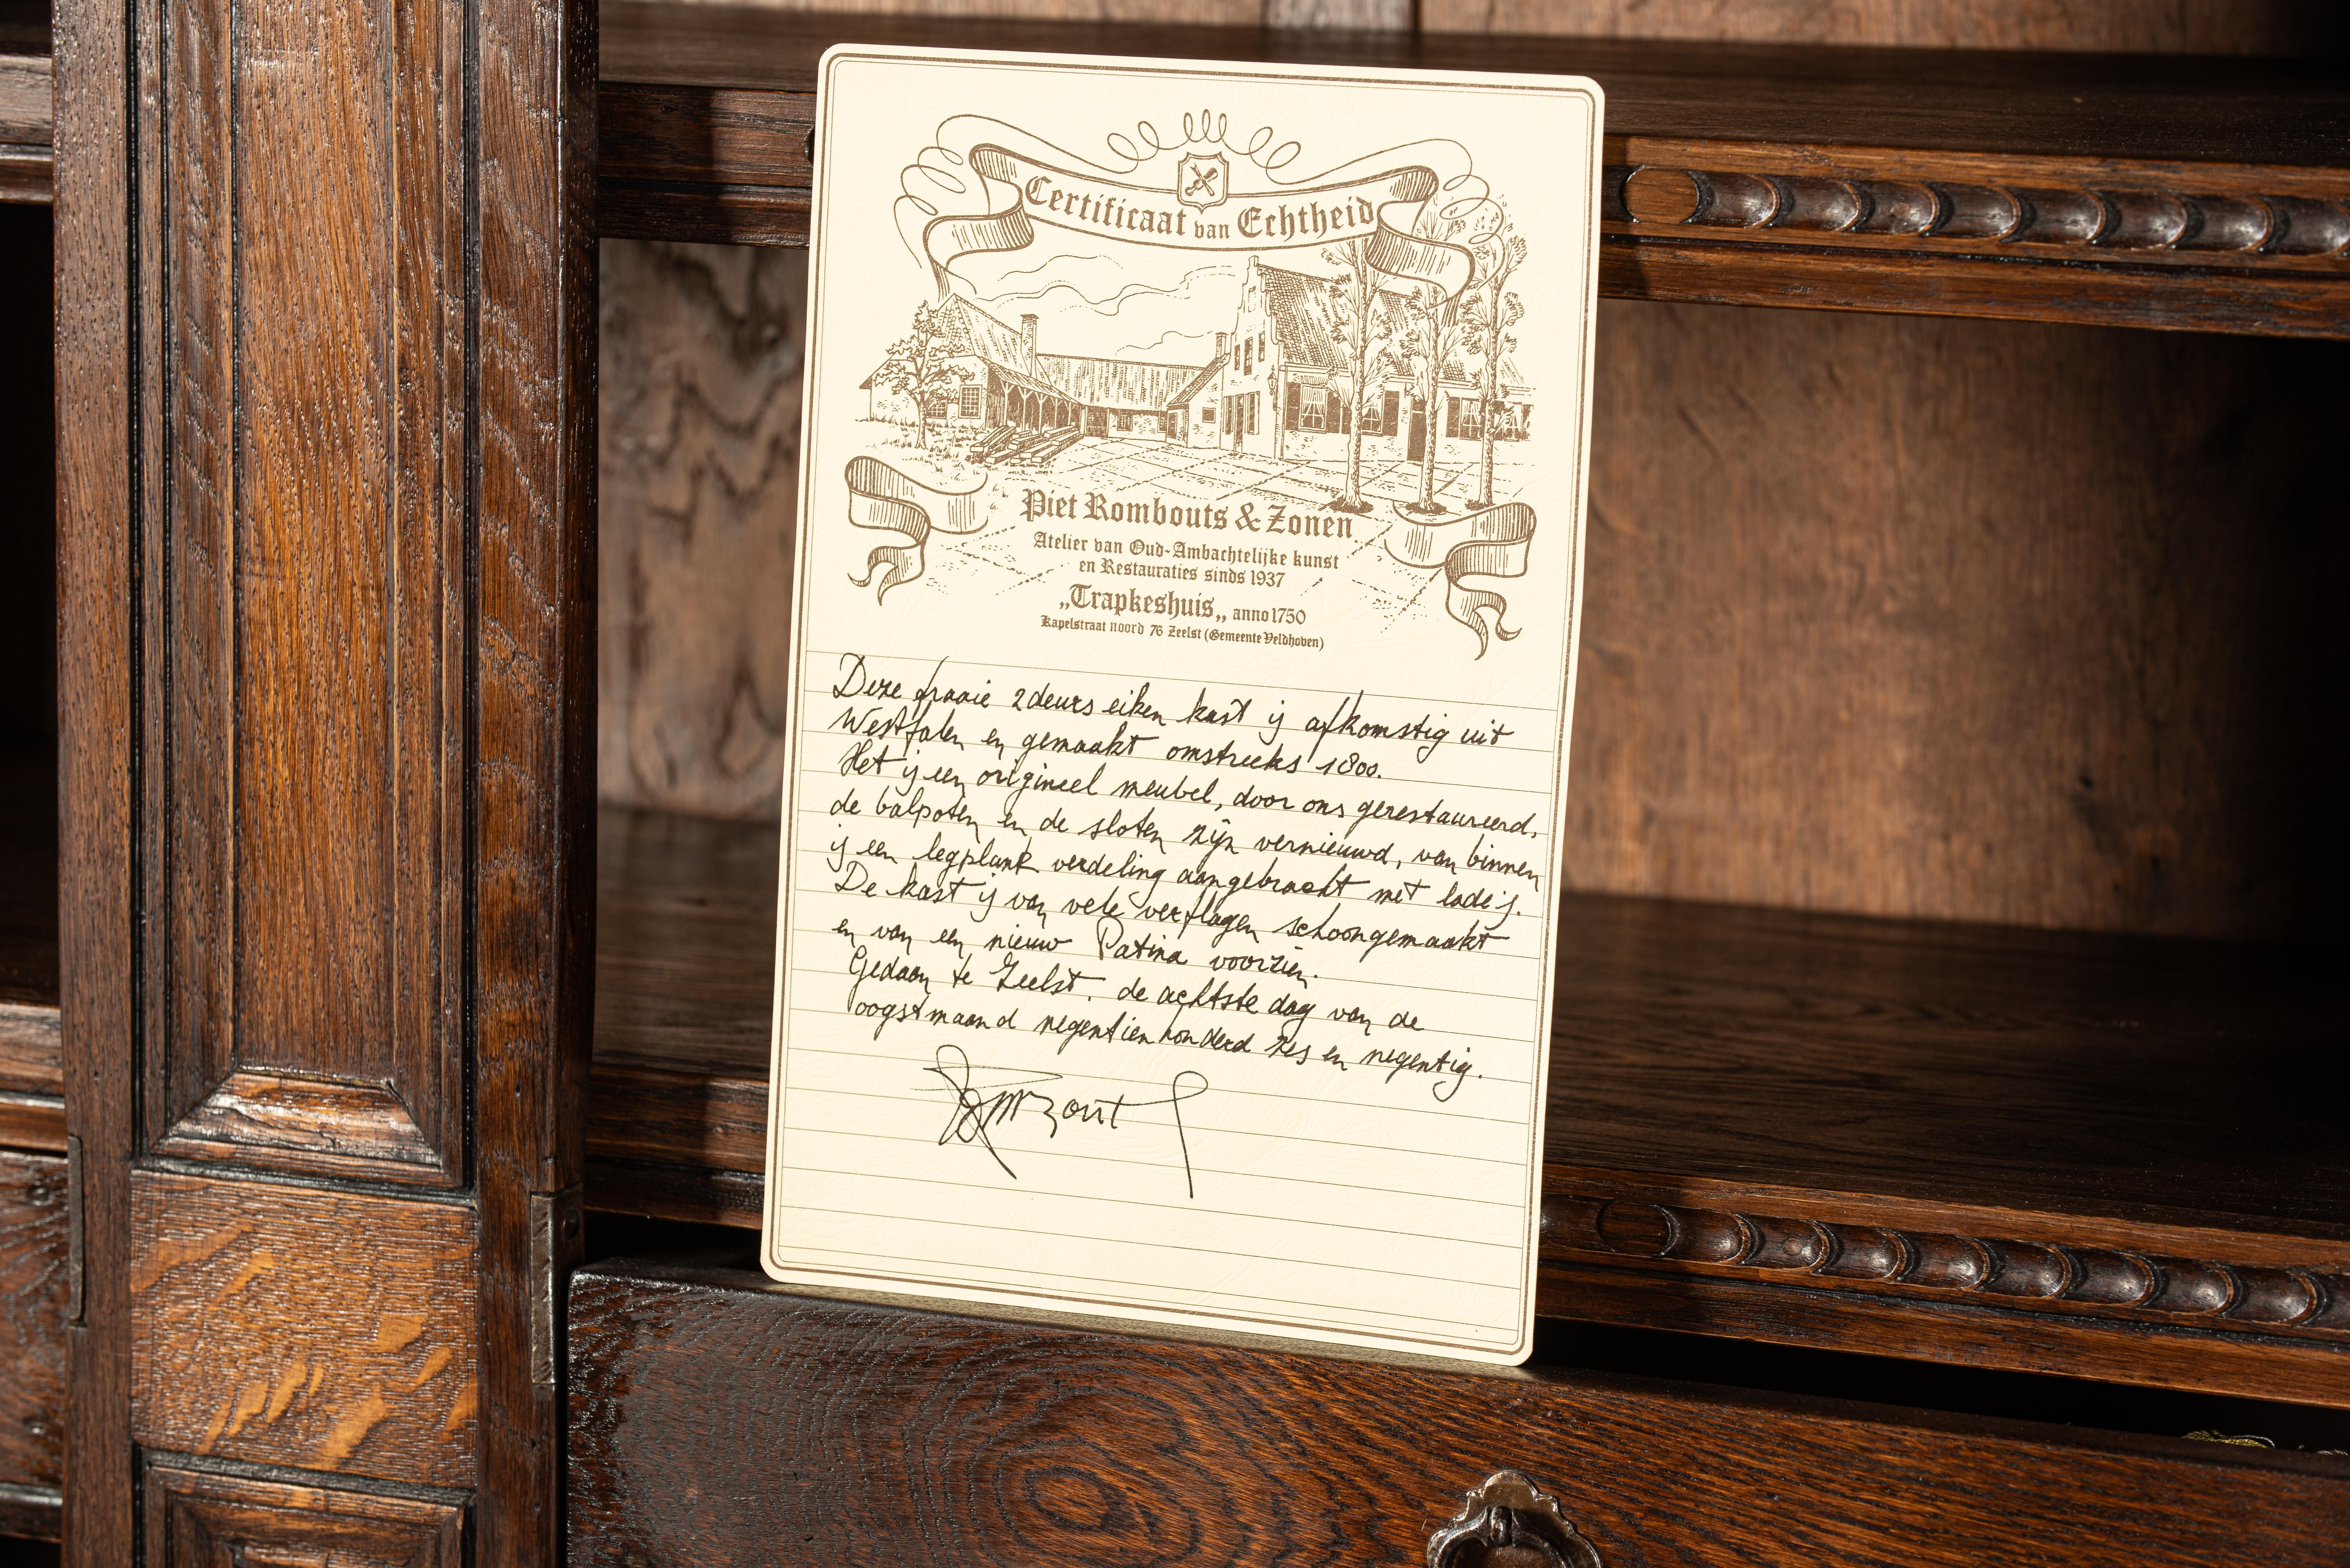 Certificaat van Echtheid
Piet Rombouts & Zonen
Atelier van Oud-Ambachtelijke kunst
en Restauraties sinds 1937
„Trapkeshuis„ anno 1750
Kapelstraat noord 76 Zeelst (Gemeente Veldhoven)
Deze fraaie 2deurs eiken kast is afkomstig uit
Westfalen en gemaakt omstreeks 1800.
Het is een origineel meubel, door ons gerestaureerd,
de balpoten en de sloten zijn vernieuwd, van binnen
is een legplank verdeling aangebracht met lade's.
De kast is van vele verflagen schoongemaakt
en van een nieuw Patina voorzien.
Gedaan te Zeelst. de achtste dag van de
oogstmaand negentienhonderd zes en negentig.